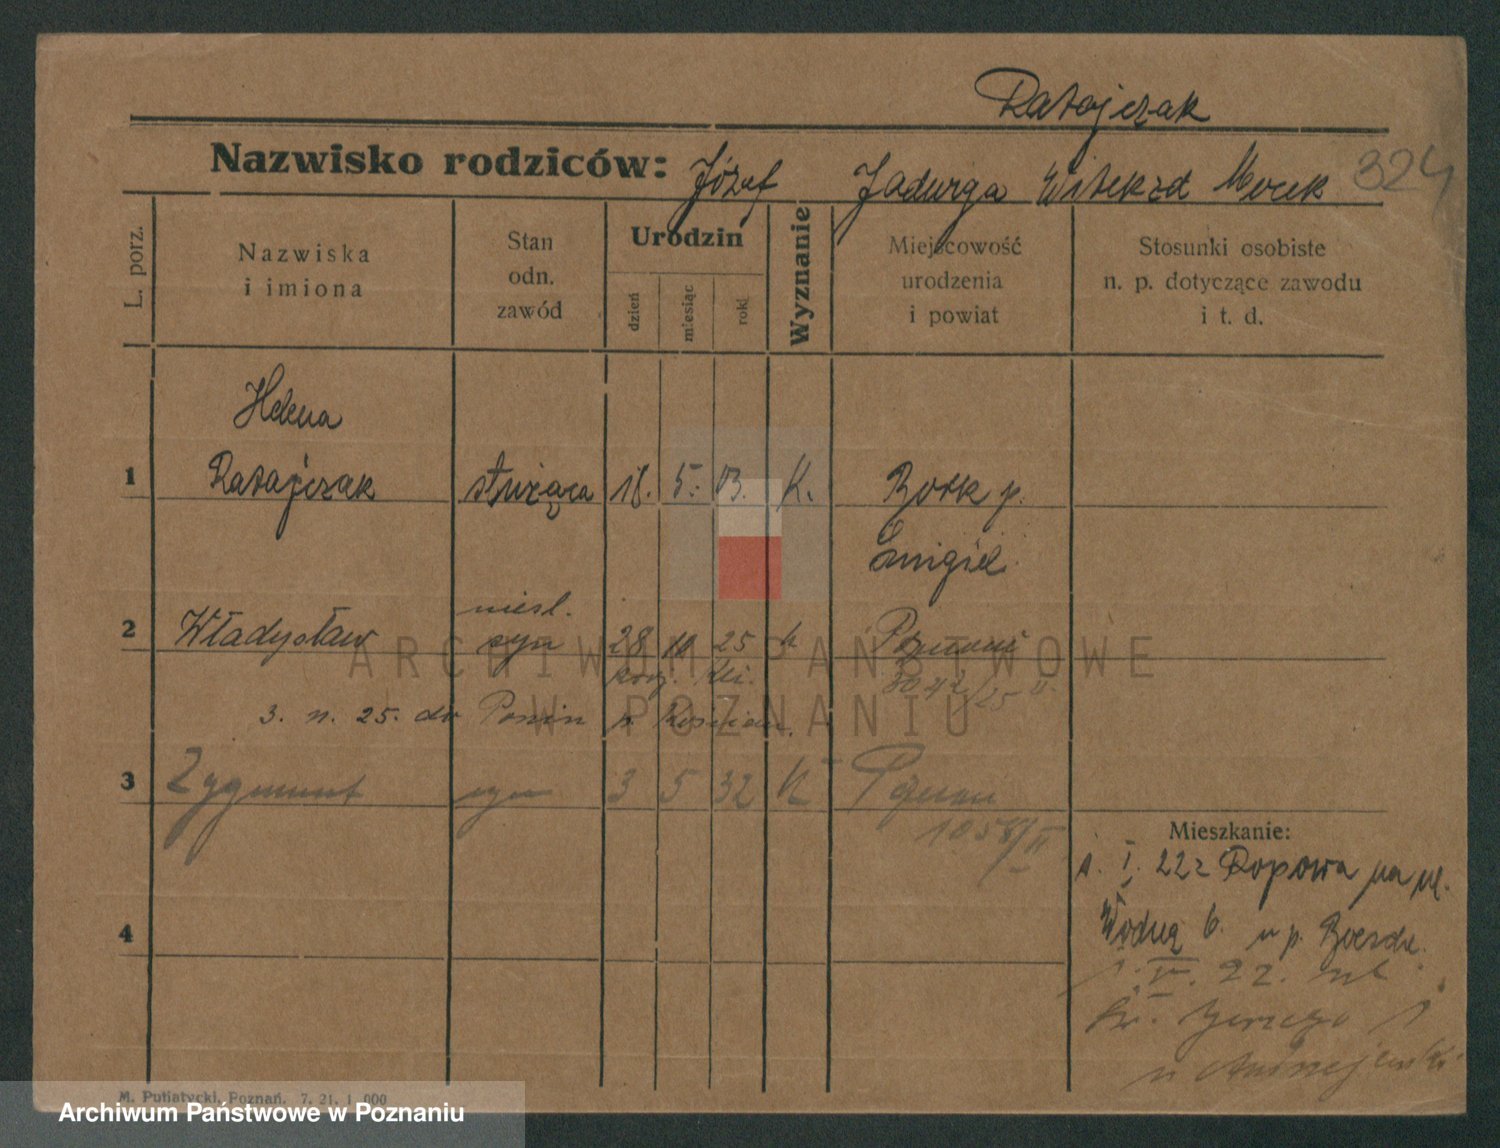 Ratajczak
324
Nazwisko rodziców: Józef Jadwiga Mocek
L. porz.
Nazwiska i imiona
Stan odn. zawód
Urodzin
dzień
miesiąc
rok
Wyznanie
Miejscowość urodzenia i powiat
Stosunki osobiste n. p. dotyczące zawodu i t. d.
Helena
1 Ratajczak służąca 18. 5. 03. K. p.
Śmigiel
niesl.
2 Władysław syn 28 10 25 k Poznań
3042/25 II.
3. n. 25. do Ponin p. Kościan.
3 Zygmunt syn 3 5 32 K Poznań
1058/II
Mieszkanie:
s. I. 22 z Ropowa na ul.
4
Wodną 6. u p.
1. V. 22. na
św. Jerzego 1
u
M. Putiatycki, Poznań. 7. 21. 1 000
ARCHIWUM PAŃSTWOWE
W POZNANIU
Archiwum Państwowe w Poznaniu